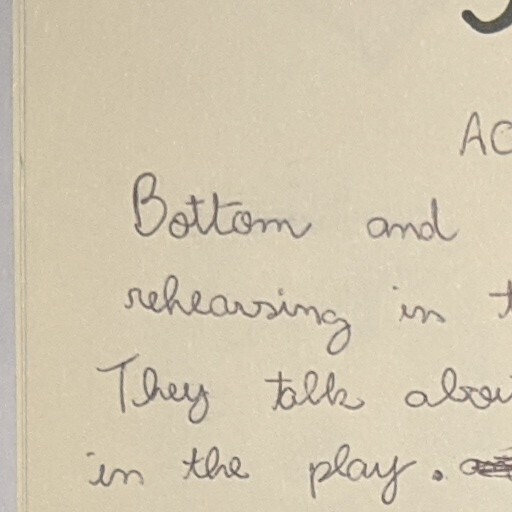 AC
Bottom and
rehearsing in t
They talk abou
in the play.